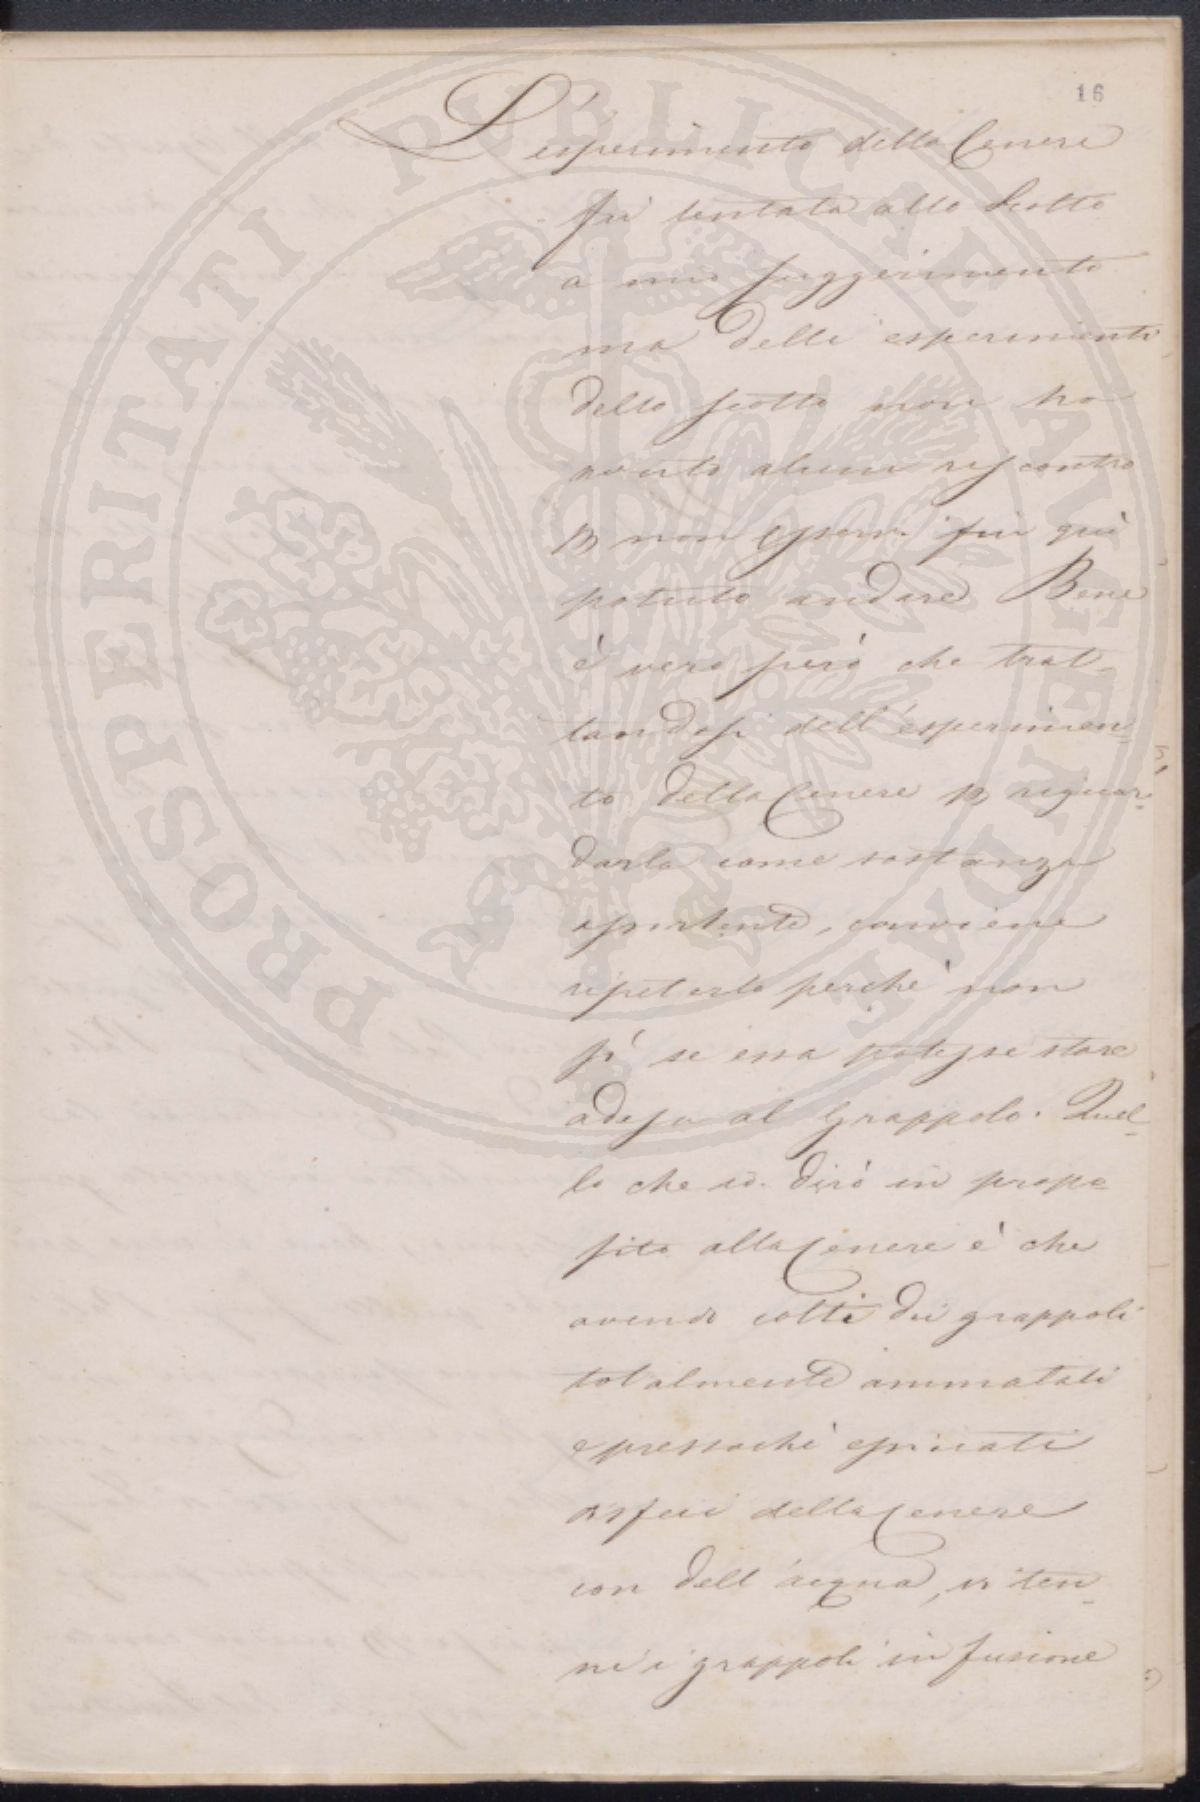 16
L'esperimento della Cenere
fù tentata allo Scotto
a mio suggerimento
ma delli esperimenti
dello Scotto non ho
avuto alcun riscontro
p non esservi fin quì
potuto andare Bene
è vero però che trat-
tandosi dell'esperimen-
to della Cenere p riguar-
darla come sostanza
assorbente, conviene
ripeterlo perchè non
sì se essa potesse stare
adesa al Grappolo. Quel-
lo che io dirò in propo-
sito alla Cenere è che
avendo colti dei grappoli
totalmente ammalati
e pressochè essicati
disfeci della Cenere
con dell'acqua, vi ten-
ni i grappoli in fusione
PROSPERITATI PUBLICAE AUGENDAE